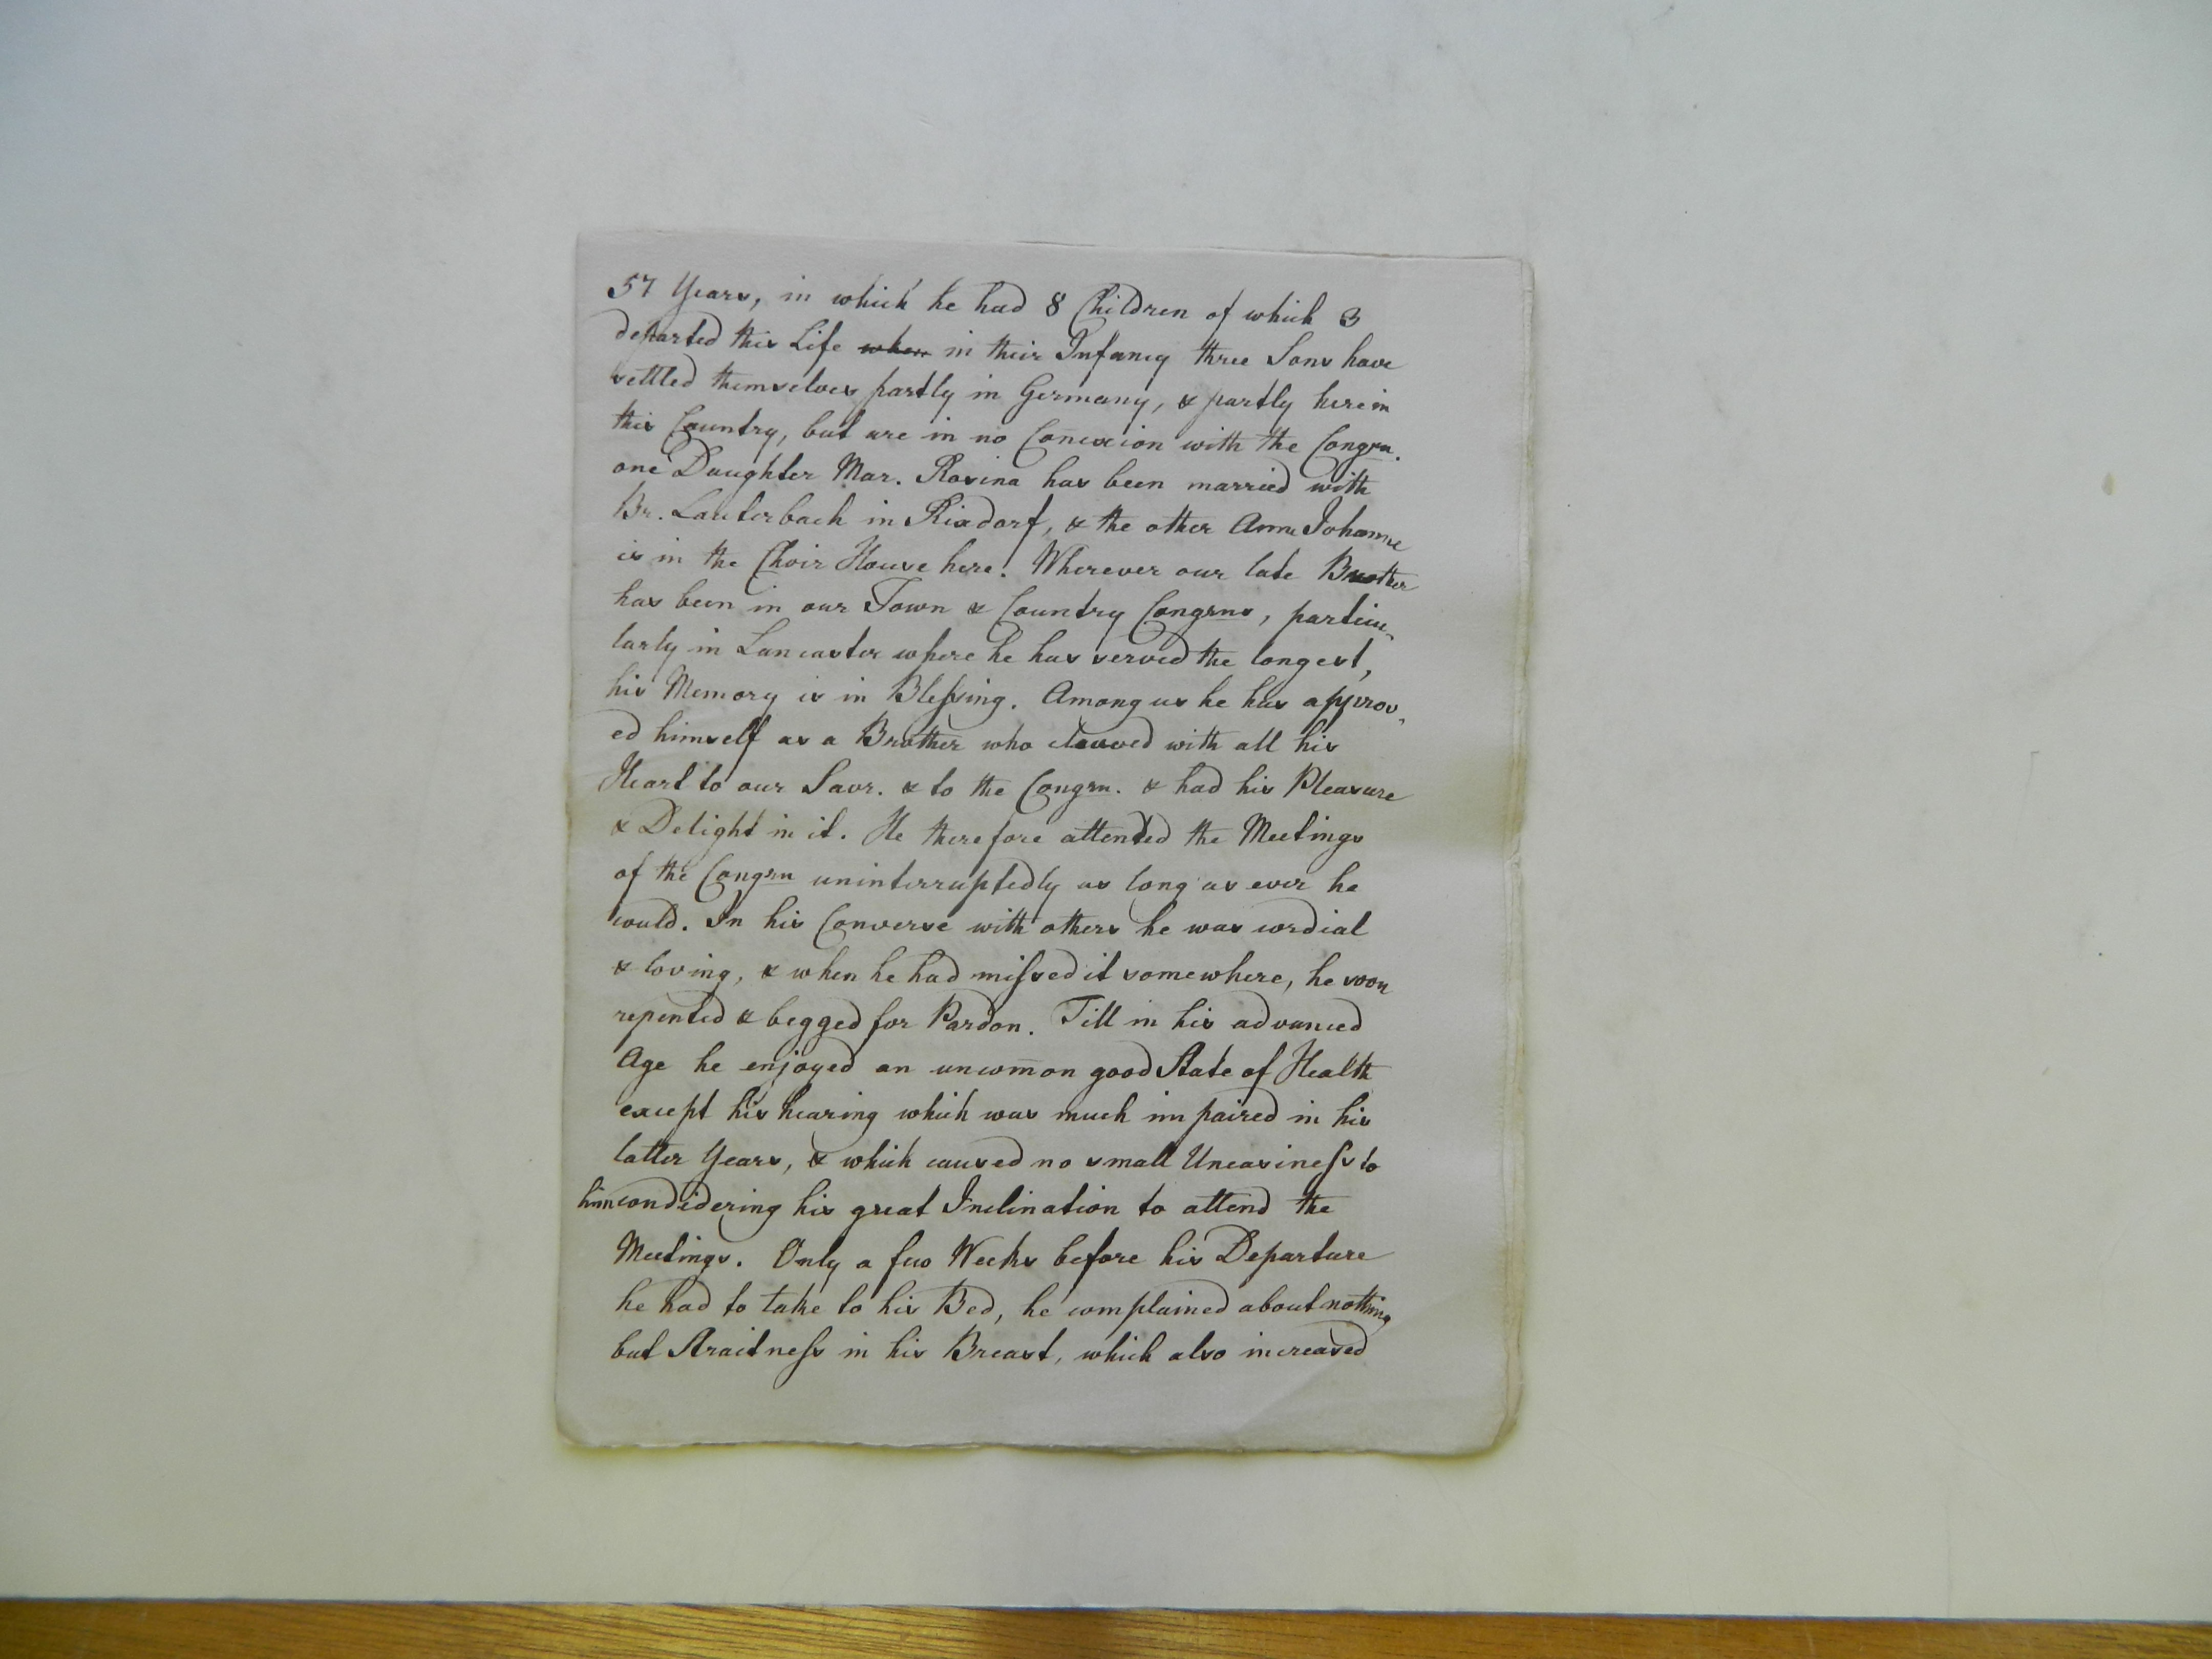 57 Years, in which he had 8 Children of which 3
departed this Life when in their Infancy three Sons have
settled themselves partly in Germany, & partly here in
this Country, but are in no Conexion with the Congrn.
one Daughter Mar. Rosina has been married with
Br. Lauterbach in Rixdorf, & the other Anne Johanne
is in the Choir House here. Wherever our late Brother
has been in our Town & Country Congrns, particu-
larly in Lancaster where he has served the longest,
his Memory is in Blessing. Among us he has approv-
ed himself as a Brother who cleaved with all his
Heart to our Savr. & to the Congrn. & had his Pleasure
& Delight in it. He therefore attended the Meetings
of the Congrn uninterruptedly as long as ever he
could. In his Converse with others he was cordial
& loving, & when he had missed it somewhere, he soon
repented & begged for Pardon. Till in his advanced
Age he enjoyed an uncom̄on good State of Health
except his hearing which was much impaired in his
latter Years, & which caused no small Uneasiness to
him condidering his great Inclination to attend the
Meetings. Only a few Weeks before his Departure
he had to take to his Bed, he complained about nothing
but Straitness in his Breast, which also increased